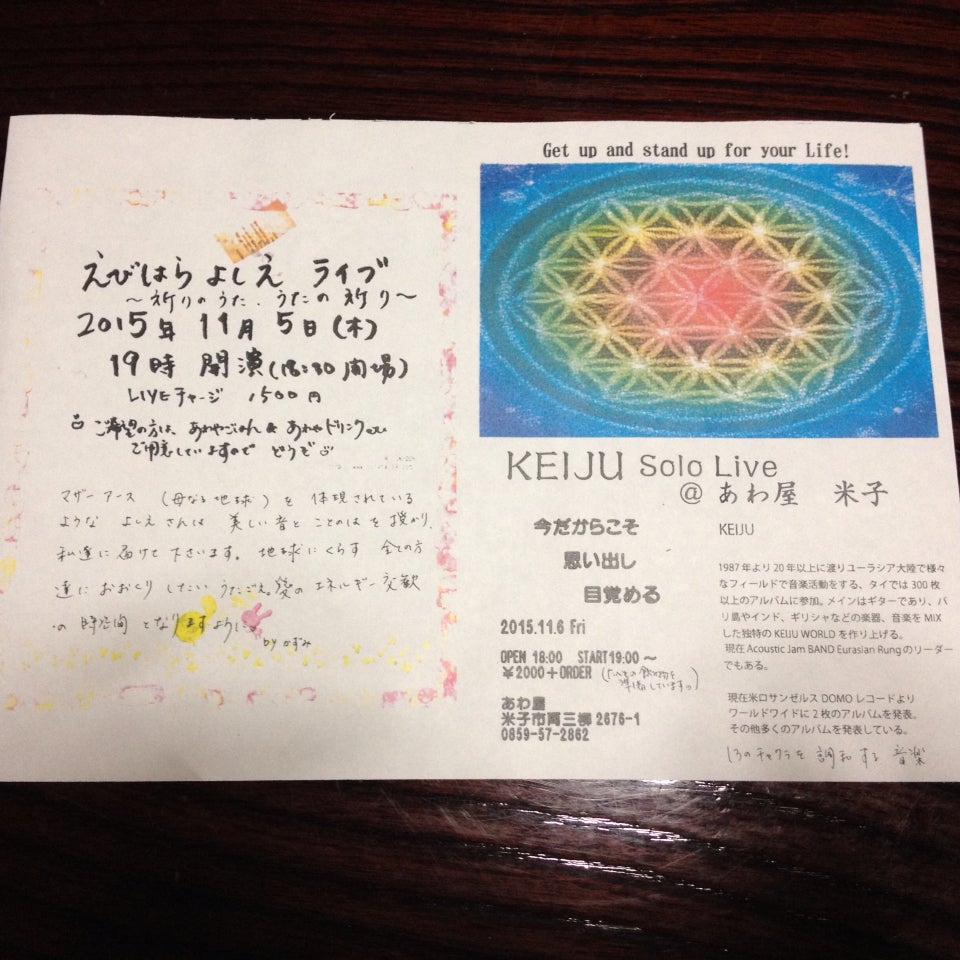 えびはら よしえ ライブ
〜祈りのうた．うたの祈り〜
2015年 11月 5日(木)
19時 開演(18:30開場)
LIVEチャージ 1500円
ご希望の方は、あわやごはん & あわやドリンクetc
ご用意していますので どうぞ
マザーアース (母なる地球) を 体現されている
ような よしえさんは 美しい音と ことのはを 授かり、
私達に届けて下さいます。地球にくらす 全ての方
達に おおくりしたい うたごえ。愛の エネルギー交歓
の 時空間 となりますように。
by かずみ
Get up and stand up for your Life!
KEIJU Solo Live
@ あわ屋 米子
今だからこそ
思い出し
目覚める
2015.11.6 Fri
OPEN 18:00 START19:00〜
￥2000+ORDER
あわ屋
米子市両三柳 2676-1
0859-57-2862
KEIJU
1987年より20年以上に渡りユーラシア大陸で様々
なフィールドで音楽活動をする、タイでは300枚
以上のアルバムに参加。メインはギターであり、バ
リ島やインド、ギリシャなどの楽器、音楽をMIX
した独特のKEIJU WORLDを作り上げる。
現在Acoustic Jam BAND Eurasian Rungのリーダー
でもある。
現在米ロサンゼルスDOMOレコードより
ワールドワイドに2枚のアルバムを発表。
その他多くのアルバムを発表している。
チャクラを 調和する 音楽